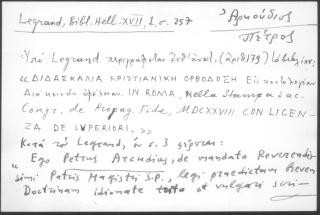 Legrand, Bibl. Hell. XVII, 1, σ. 257
Ἀρκούδιος
Πέτρος
Ὑπὸ Legrand περιγράφεται ἀνθ' ἀνατ. (ἀριθ 179) τὸ βιβλίον:
«ΔΙΔΑΣΚΑΛΙΑ ΧΡΙΣΤΙΑΝΙΚΗ ΟΡΘΟΔΟΞΗ Εἰς
Διὰ κοινὴν ὠφέλειαν. IN ROMA, Nella Stampa della Sac.
Congr. de Propag. Fide, MDCXXVIII. CON LICEN-
ZA DE SUPERIORI.»
Κατὰ τὸν Legrand, ἐν σ. 3 φέρεται:
« Ego Petrus Arcudius, de mandato Reverendis-
simi Patris Magistri S.P., legi praedictam hanc
Doctrinam idiomate et vulgari scri-